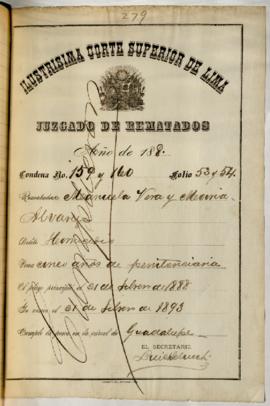 279
ILUSTRISIMA CORTE SUPERIOR DE LIMA
JUZGADO DE REMATADOS
Año de 188
Condena No. 159 y 160 Folio 53 y 54
Rematados Manuela Vera y Maria
Alvarez
Delito Homicidio
Pena cinco años de penitenciaria
El plazo principió el 21 de Febrero de 1888
Se vence el 21 de Febrero de 1893
Cumple la pena en la carcel de Guadalupe
EL SECRETARIO